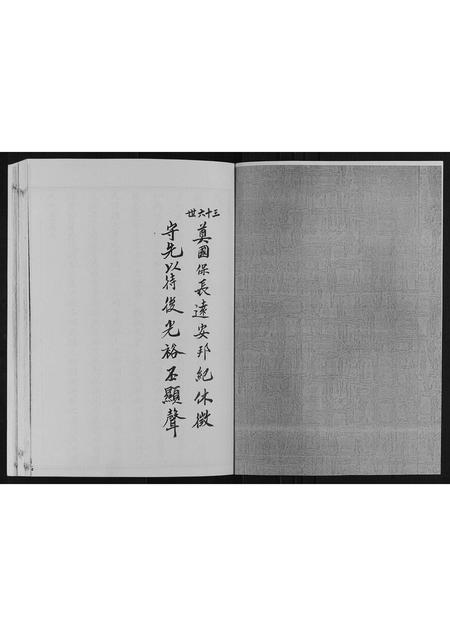 三十六世
奠國保長遠安邦紀休徵
守先以待後光裕丕顯聲